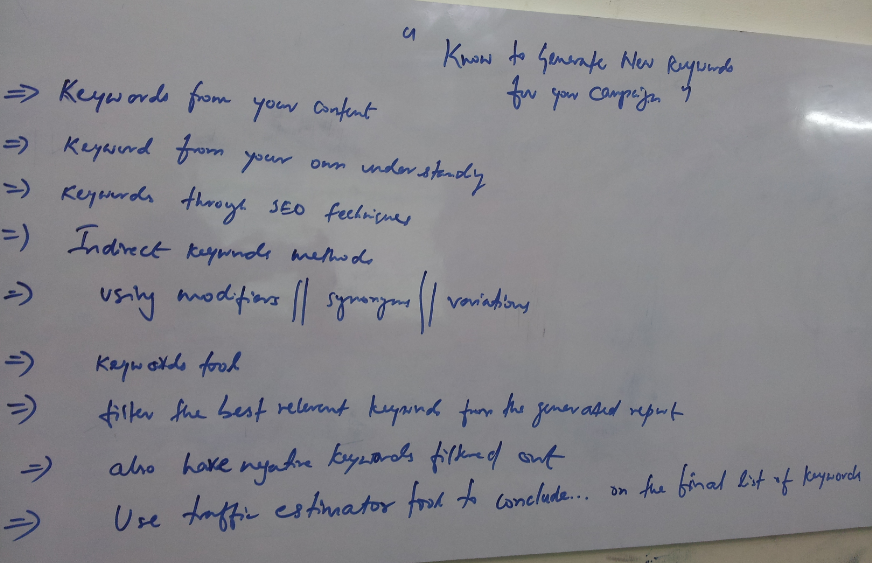 " Know to Generate New Keywords
for your campaign "
=> Keywords from your content
=> Keyword from your own understandy
=> Keywords through SEO techniques
=> Indirect keywords methods
=> using modifiers || synonyms || variations
=> Keywords tool
=> filter the best relevent keywords from the generated report
=> also have negative keywords filtered out
=> Use traffic estimator tool to conclude... on the final list of keywords